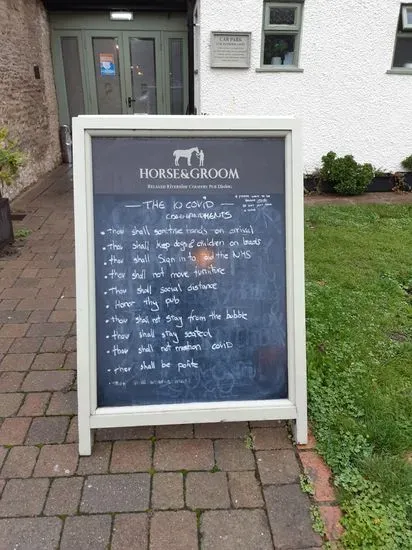 CAR PARK
HORSE&GROOM
RELAXED RIVERSIDE COUNTRY PUB DINING
THE 10 COVID
COMMANDMENTS
Thou shall sanitise hands on arrival
Thou shall keep dogs & children on leads
Thou shall Sign in to aid the NHS
Thou shall not move furniture
Thou shall social distance
Honor thy pub
thou shall not stray from the bubble
thou shall stay seated
thou shall not mention COVID
thou shall be polite
thou shall